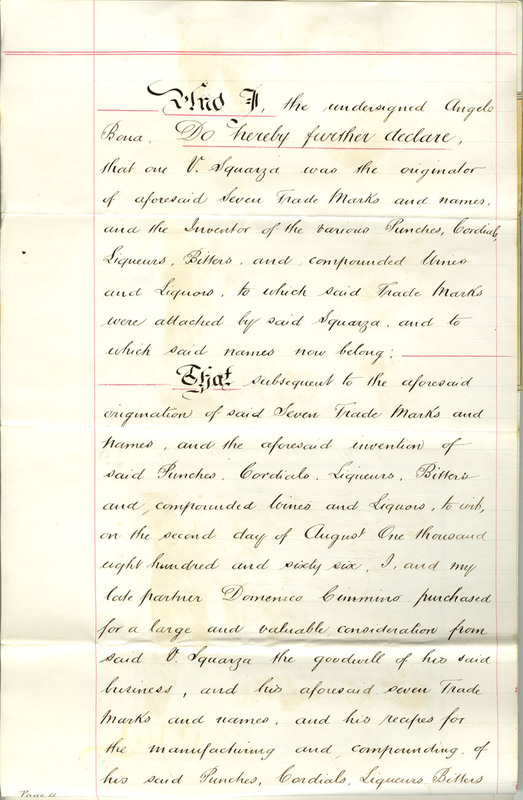 And I, the undersigned Angelo
Bona. Do hereby further declare,
that one V. Squarza was the originator
of aforesaid Seven Trade Marks and names,
and the Inventor of the various Punches, Cordials,
Liqueurs, Bitters, and compounded Wines
and Liquors, to which said Trade Marks
were attached by said Squarza, and to
which said names now belong:
That subsequent to the aforesaid
origination of said Seven Trade Marks and
names, and the aforesaid invention of
said Punches. Cordials. Liqueurs, Bitters
and, compounded Wines and Liquors, to wit,
on the second day of August One thousand
eight hundred and sixty six, I, and my
late partner Domenico Cummino purchased
for a large and valuable consideration from
said V. Squarza the goodwill of his said
business, and his aforesaid seven Trade
Marks and names, and his recipes for
the manufacturing and compounding of
his said Punches, Cordials, Liqueurs, Bitters